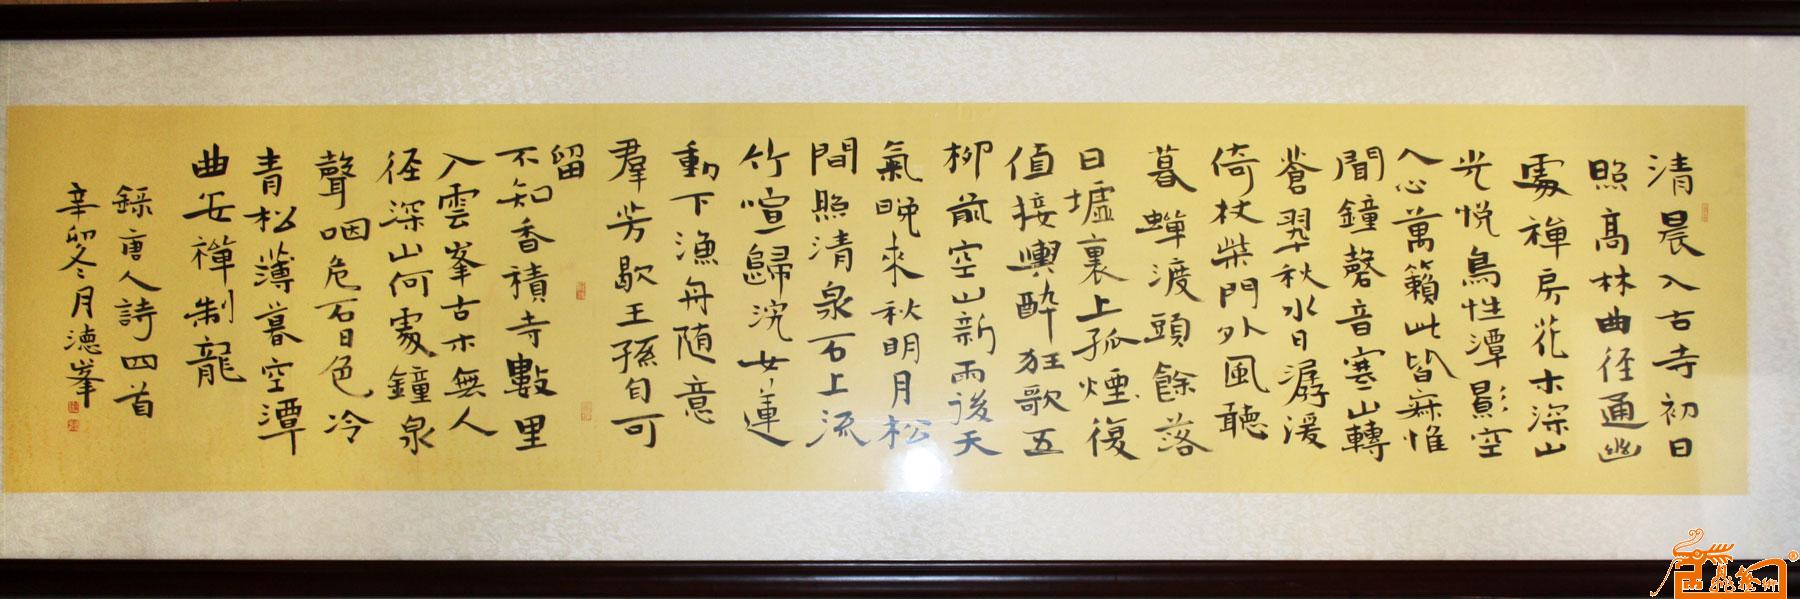 清晨入古寺初日
照高林曲徑通幽
處禪房花木深山
光悦鳥性潭影空
人心萬籟此皆寂惟
聞鐘磬音寒山轉
蒼翠秋水日潺湲
倚杖柴門外風聽
暮蟬渡頭餘落
日墟裏上孤煙復
值接輿醉狂歌五
柳前空山新雨後天
氣晚來秋明月松
間照清泉石上流
竹喧歸浣女蓮
動下漁舟随意
群芳歇王孫自可
留
不知香積寺數里
入雲峯古木無人
徑深山何處鐘泉
聲咽危石日色冷
青松薄暮空潭
曲安禪制龍
録唐人詩四首
辛卯冬月德峯